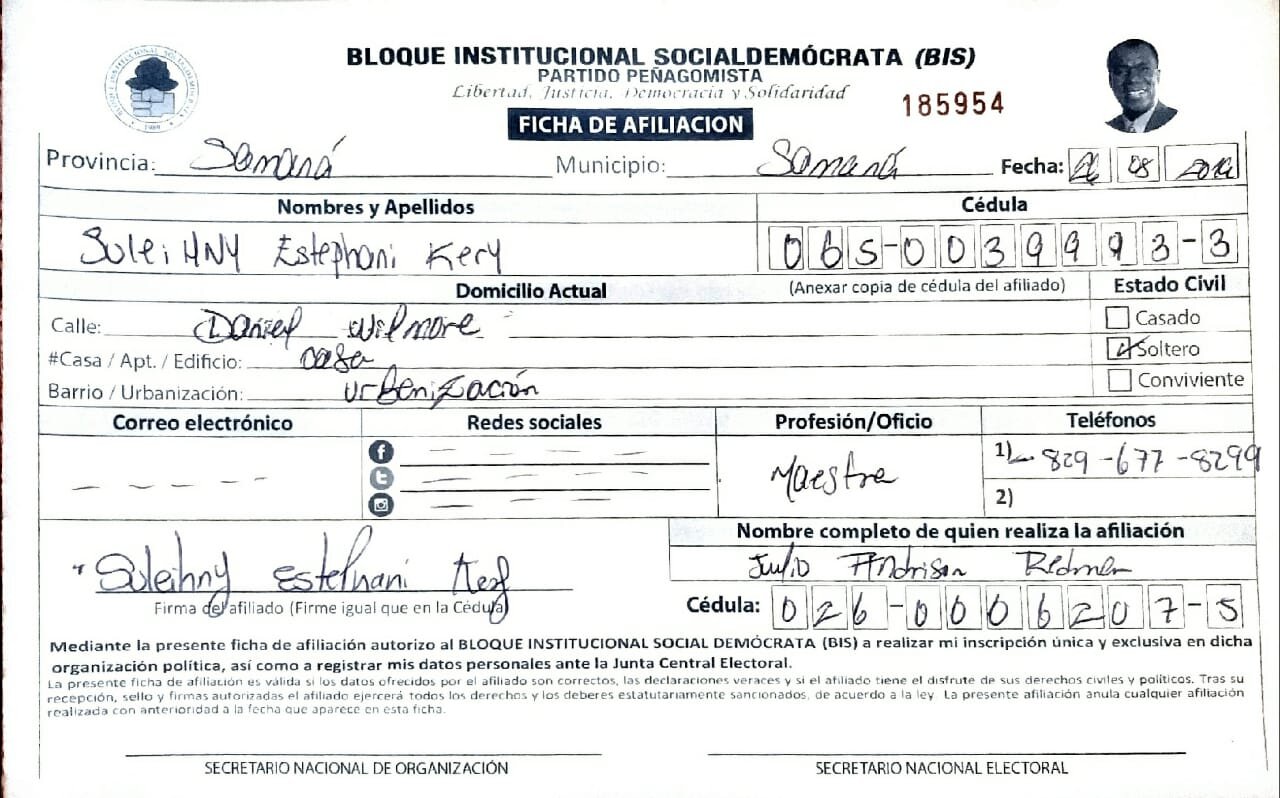 BLOQUE INSTITUCIONAL SOCIALDEMÓCRATA (BIS)
PARTIDO PEÑAGOMISTA
Libertad, Justicia, Democracia y Solidaridad
185954
FICHA DE AFILIACION
Provincia: Samaná Municipio: Samaná Fecha: 08
Nombres y Apellidos Cédula
SuleiHNY Estephani Kery 065-0039993-3
Domicilio Actual (Anexar copia de cédula del afiliado) Estado Civil
Calle: Daniel Wilmore Casado
#Casa / Apt. / Edificio: casa Soltero
Barrio / Urbanización: urbenización Conviviente
Correo electrónico Redes sociales Profesión/Oficio Teléfonos
Maestra 1) 829-677-8299
2)
Nombre completo de quien realiza la afiliación
Suleihny Estephani Julio Andrison Redman
Firma del afiliado (Firme igual que en la Cédula) Cédula: 026-0006207-5
Mediante la presente ficha de afiliación autorizo al BLOQUE INSTITUCIONAL SOCIAL DEMÓCRATA (BIS) a realizar mi inscripción única y exclusiva en dicha
organización política, así como a registrar mis datos personales ante la Junta Central Electoral.
La presente ficha de afiliación es válida si los datos ofrecidos por el afiliado son correctos, las declaraciones veraces y si el afiliado tiene el disfrute de sus derechos civiles y políticos. Tras su
recepción, sello y firmas autorizadas el afiliado ejercerá todos los derechos y los deberes estatutariamente sancionados, de acuerdo a la ley. La presente afiliación anula cualquier afiliación
realizada con anterioridad a la fecha que aparece en esta ficha.
SECRETARIO NACIONAL DE ORGANIZACIÓN SECRETARIO NACIONAL ELECTORAL